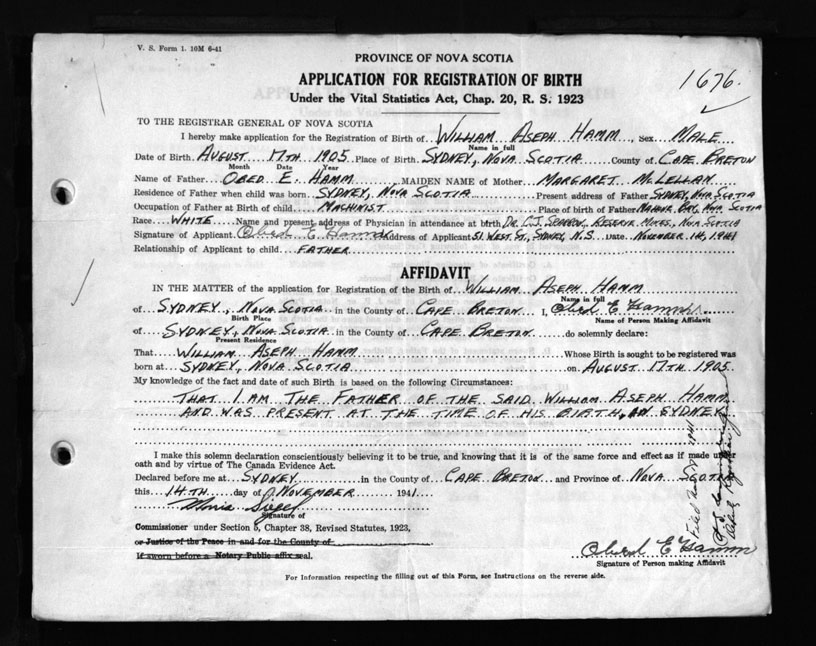 V. S. Form 1. 10M 6-41
PROVINCE OF NOVA SCOTIA
APPLICATION FOR REGISTRATION OF BIRTH
Under the Vital Statistics Act, Chap. 20, R. S. 1923
1676.
TO THE REGISTRAR GENERAL OF NOVA SCOTIA
I hereby make application for the Registration of Birth of WILLIAM ASEPH HAMM, Sex MALE
Name in full
Date of Birth AUGUST 17TH 1905 Place of Birth SYDNEY, NOVA SCOTIA County of CAPE BRETON
Month Date Year
Name of Father OBED E. HAMM, MAIDEN NAME of Mother MARGARET MCLELLAN
Residence of Father when child was born SYDNEY, NOVA SCOTIA Present address of Father SYDNEY, NOVA SCOTIA
Occupation of Father at Birth of child MACHINIST Place of birth of Father MAHONE BAY, NOVA SCOTIA
Race WHITE Name and present address of Physician in attendance at birth DR. C.J. RESERVE MINES, NOVA SCOTIA
Signature of Applicant Obed E Hamm Address of Applicant 51 WEST ST., SYDNEY, N.S. Date NOVEMBER 14, 1941
Relationship of Applicant to child FATHER
AFFIDAVIT
IN THE MATTER of the application for Registration of the Birth of WILLIAM ASEPH HAMM
Name in full
of SYDNEY, NOVA SCOTIA in the County of CAPE BRETON I, Obed E Hamm
Birth Place Name of Person Making Affidavit
of SYDNEY, NOVA SCOTIA in the County of CAPE BRETON do solemnly declare:
Present Residence
That WILLIAM ASEPH HAMM Whose Birth is sought to be registered was
born at SYDNEY, NOVA SCOTIA on AUGUST 17TH 1905
My knowledge of the fact and date of such Birth is based on the following Circumstances:
THAT I AM THE FATHER OF THE SAID WILLIAM ASEPH HAMM
AND WAS PRESENT AT THE TIME OF HIS BIRTH, IN SYDNEY
I make this solemn declaration conscientiously believing it to be true, and knowing that it is of the same force and effect as if made under
oath and by virtue of The Canada Evidence Act.
Declared before me at SYDNEY in the County of CAPE BRETON and Province of NOVA SCOTIA
this 14TH day of NOVEMBER 1941
Signature of
Commissioner under Section 5, Chapter 38, Revised Statutes, 1923,
or Justice of the Peace in and for the County of
If sworn before a Notary Public affix seal.
Obed E Hamm
Signature of Person making Affidavit
For Information respecting the filling out of this Form, see Instructions on the reverse side.